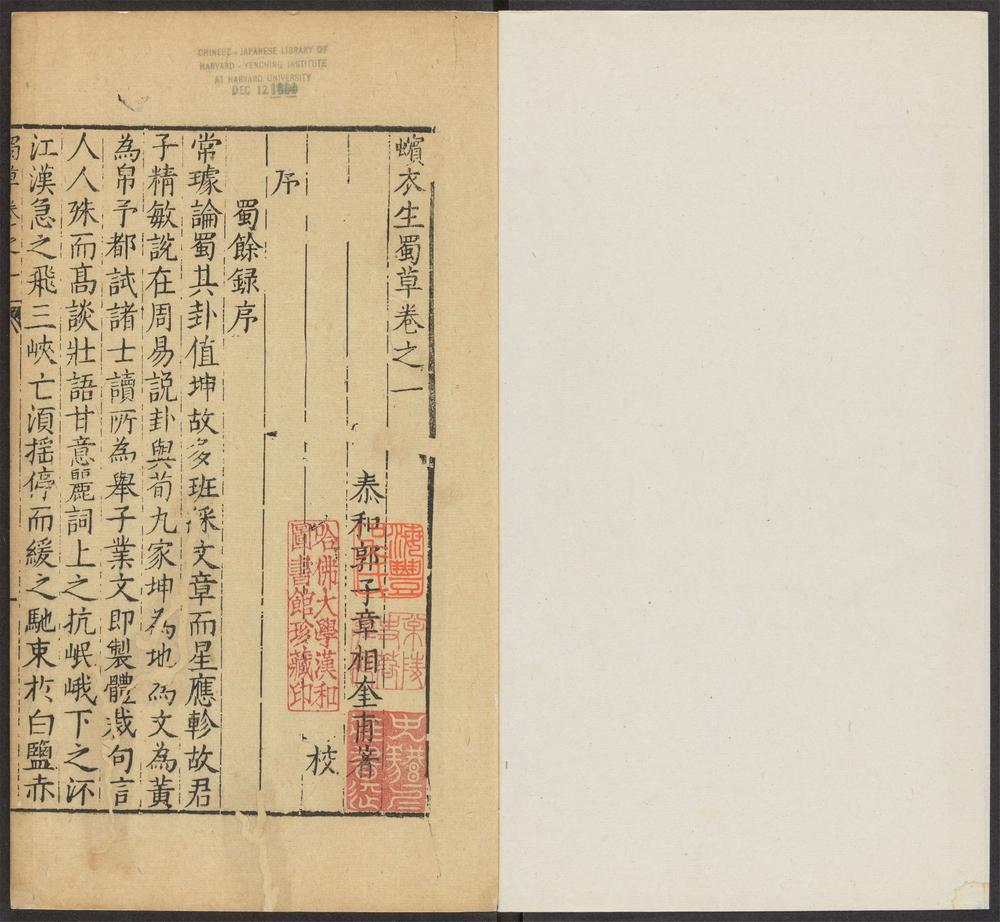 CHINESE - JAPANESE LIBRARY OF
HARVARD - YENCHING INSTITUTE
AT HARVARD UNIVERSITY
DEC 12
蠙衣生蜀草卷之一
泰和郭子章相奎甫著
校
序
蜀餘録序
常璩論蜀其卦值坤故多班采文章而星應軫故君
子精敏說在周易說卦與荀九家坤為地為文為黃
為帛予都試諸士讀所為舉子業文即製體裁句言
人人殊而髙談壯語甘意麗詞上之抗岷峨下之沠
江漢急之飛三峽亡湏揺停而緩之馳東於白鹽赤
蜀草卷之一
哈佛大學漢和
圖書館珍藏印